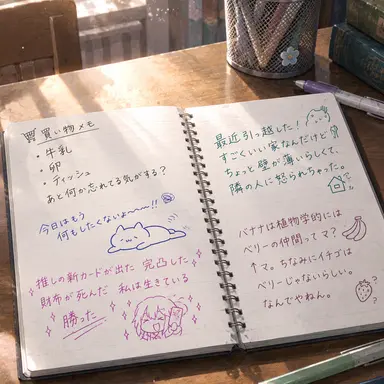 買い物メモ
・牛乳
・卵
・ティッシュ
あと何か忘れてる気がする?
今日はもう
何もしたくないよ〜〜!!
推しの新カードが出た 完凸した
財布が死んだ 私は生きている
勝った
最近引っ越した!
すごくいい家なんだけど
ちょっと壁が薄いらしくて、
隣の人に怒られちゃった。
バナナは植物学的には
ベリーの仲間ってマ?
↑マ。ちなみにイチゴは
ベリーじゃないらしい。
なんでやねん。